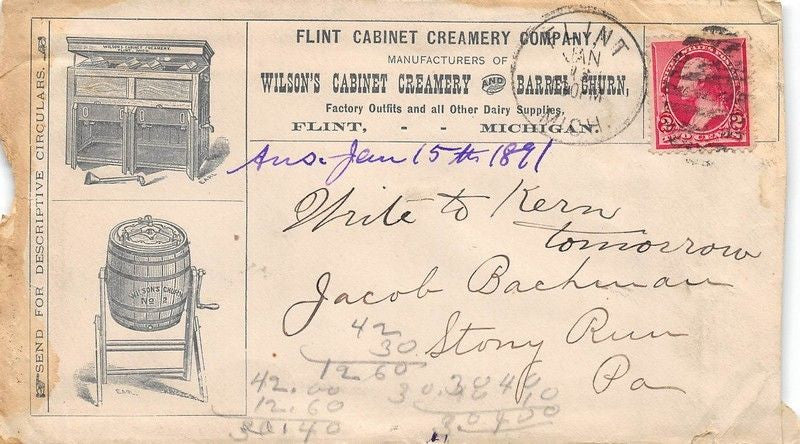 FLINT CABINET CREAMERY COMPANY,
MANUFACTURERS OF
WILSON'S CABINET CREAMERY AND BARREL CHURN,
Factory Outfits and all Other Dairy Supplies,
FLINT, - - MICHIGAN.
SEND FOR DESCRIPTIVE CIRCULARS.
WILSON'S CABINET CREAMERY
EARL
WILSON'S CHURN
No 2
EARL
FLINT
JAN
MICH.
2 2
Ans. Jan 15th 1891
Write to Kern
tomorrow
Jacob Bachman
Stony Run
Pa
42
30
12 60
42.00
12.60
30.40